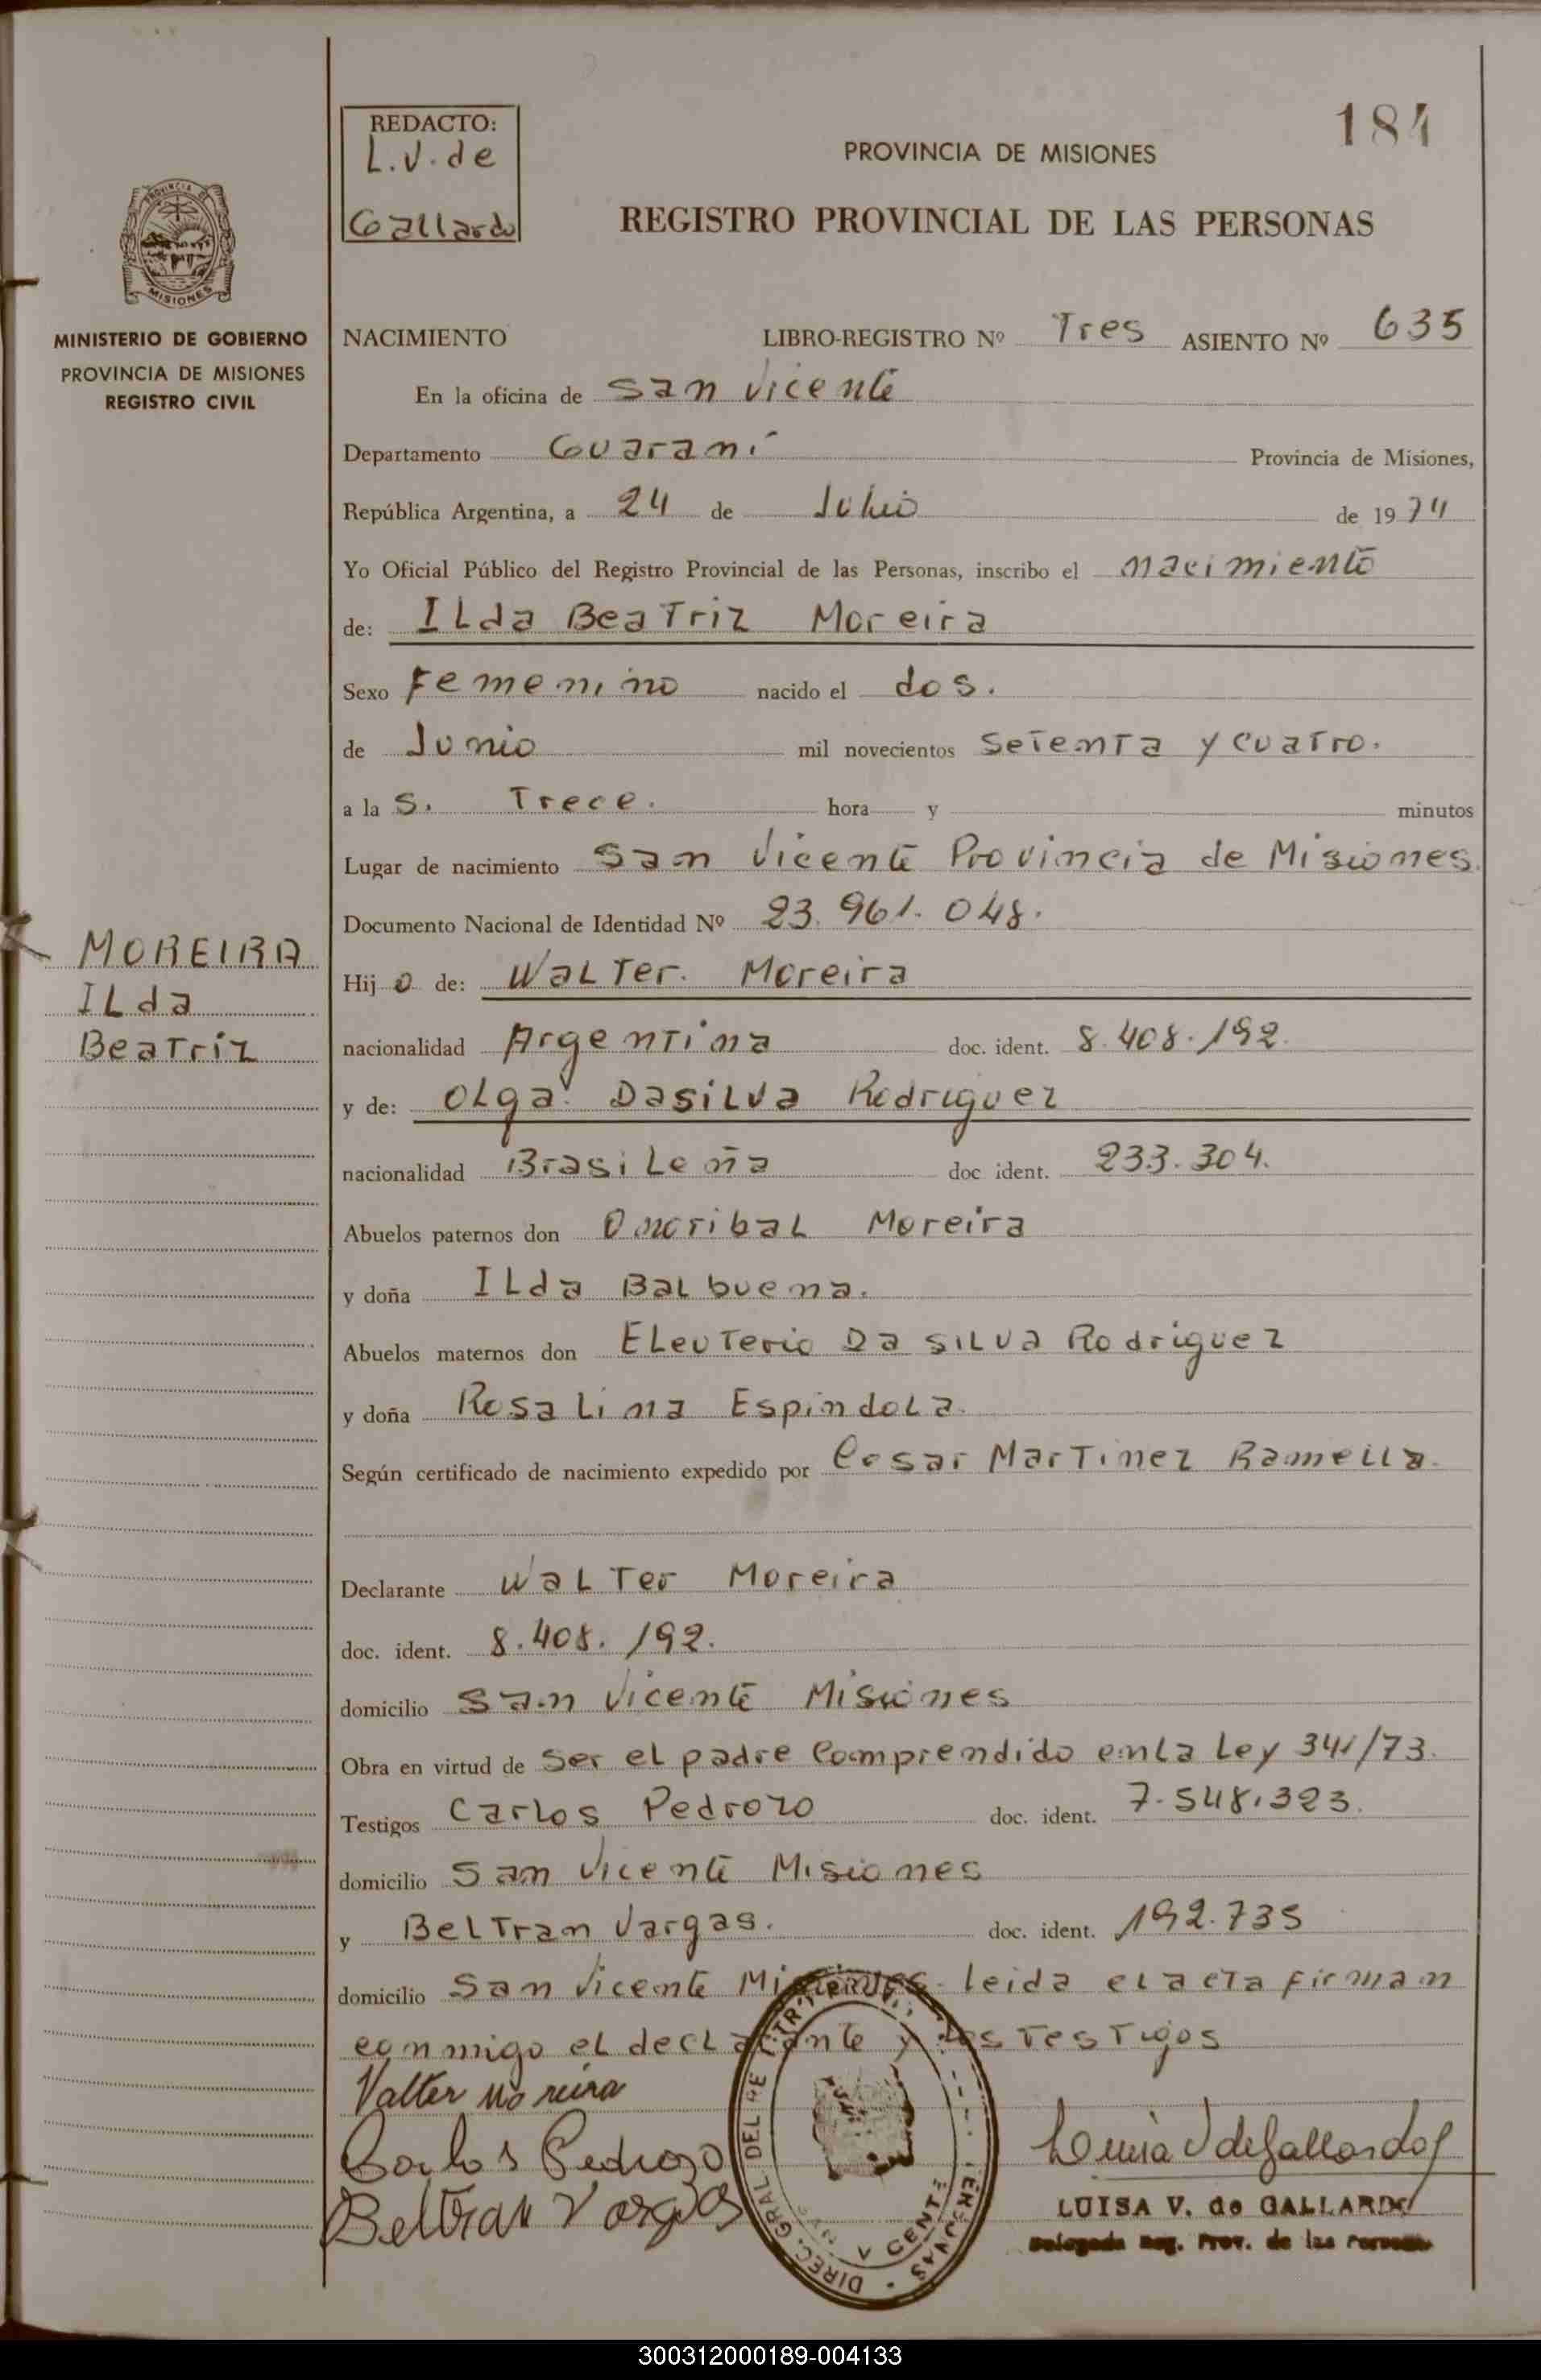 184
REDACTO:
L.V. de
Gallardo
PROVINCIA DE MISIONES
REGISTRO PROVINCIAL DE LAS PERSONAS
MISIONES
MINISTERIO DE GOBIERNO
PROVINCIA DE MISIONES
REGISTRO CIVIL
NACIMIENTO LIBRO-REGISTRO Nº Tres ASIENTO Nº 635
En la oficina de San Vicente
Departamento Guaraní Provincia de Misiones,
República Argentina, a 24 de Julio de 1974
Yo Oficial Público del Registro Provincial de las Personas, inscribo el nacimiento
de: ILda BeaTriz Moreira
Sexo Femenino nacido el dos.
de Junio mil novecientos SeTenTa y cuaTro.
a la s. Trece. hora y minutos
Lugar de nacimiento San Vicente Provincia de Misiones.
Documento Nacional de Identidad Nº 23.961.048.
MOREIRA
ILda
BeaTriz
Hij o de: WaLTer. Moreira
nacionalidad ArgenTina doc. ident. 8.408.192.
y de: OLga DasiLva Rodriguez
nacionalidad BrasiLeña doc ident. 233.304.
Abuelos paternos don Moreira
y doña ILda BaLbuena.
Abuelos maternos don ELeuTerio Da SiLva Rodriguez
y doña RosaLina EspindoLa.
Según certificado de nacimiento expedido por Cesar MarTinez Ramella.
Declarante WaLTer Moreira
doc. ident. 8.408.192.
domicilio San Vicente Misiones
Obra en virtud de Ser el padre Comprendido en La Ley 341/73.
Testigos Carlos Pedrozo doc. ident. 7.548.323.
domicilio San Vicente Misiones
y BeLTran Vargas. doc. ident. 192.735
domicilio San Vicente Misiones leida el acta firman
conmigo el decLarante y Los TesTigos
Valter Moreira
Carlos Pedrozo
Beltran Vargas
Luisa V de Gallardo
LUISA V. de GALLARDO
Delegada Reg. Prov. de las Personas
DIREC. GRAL DEL
300312000189-004133